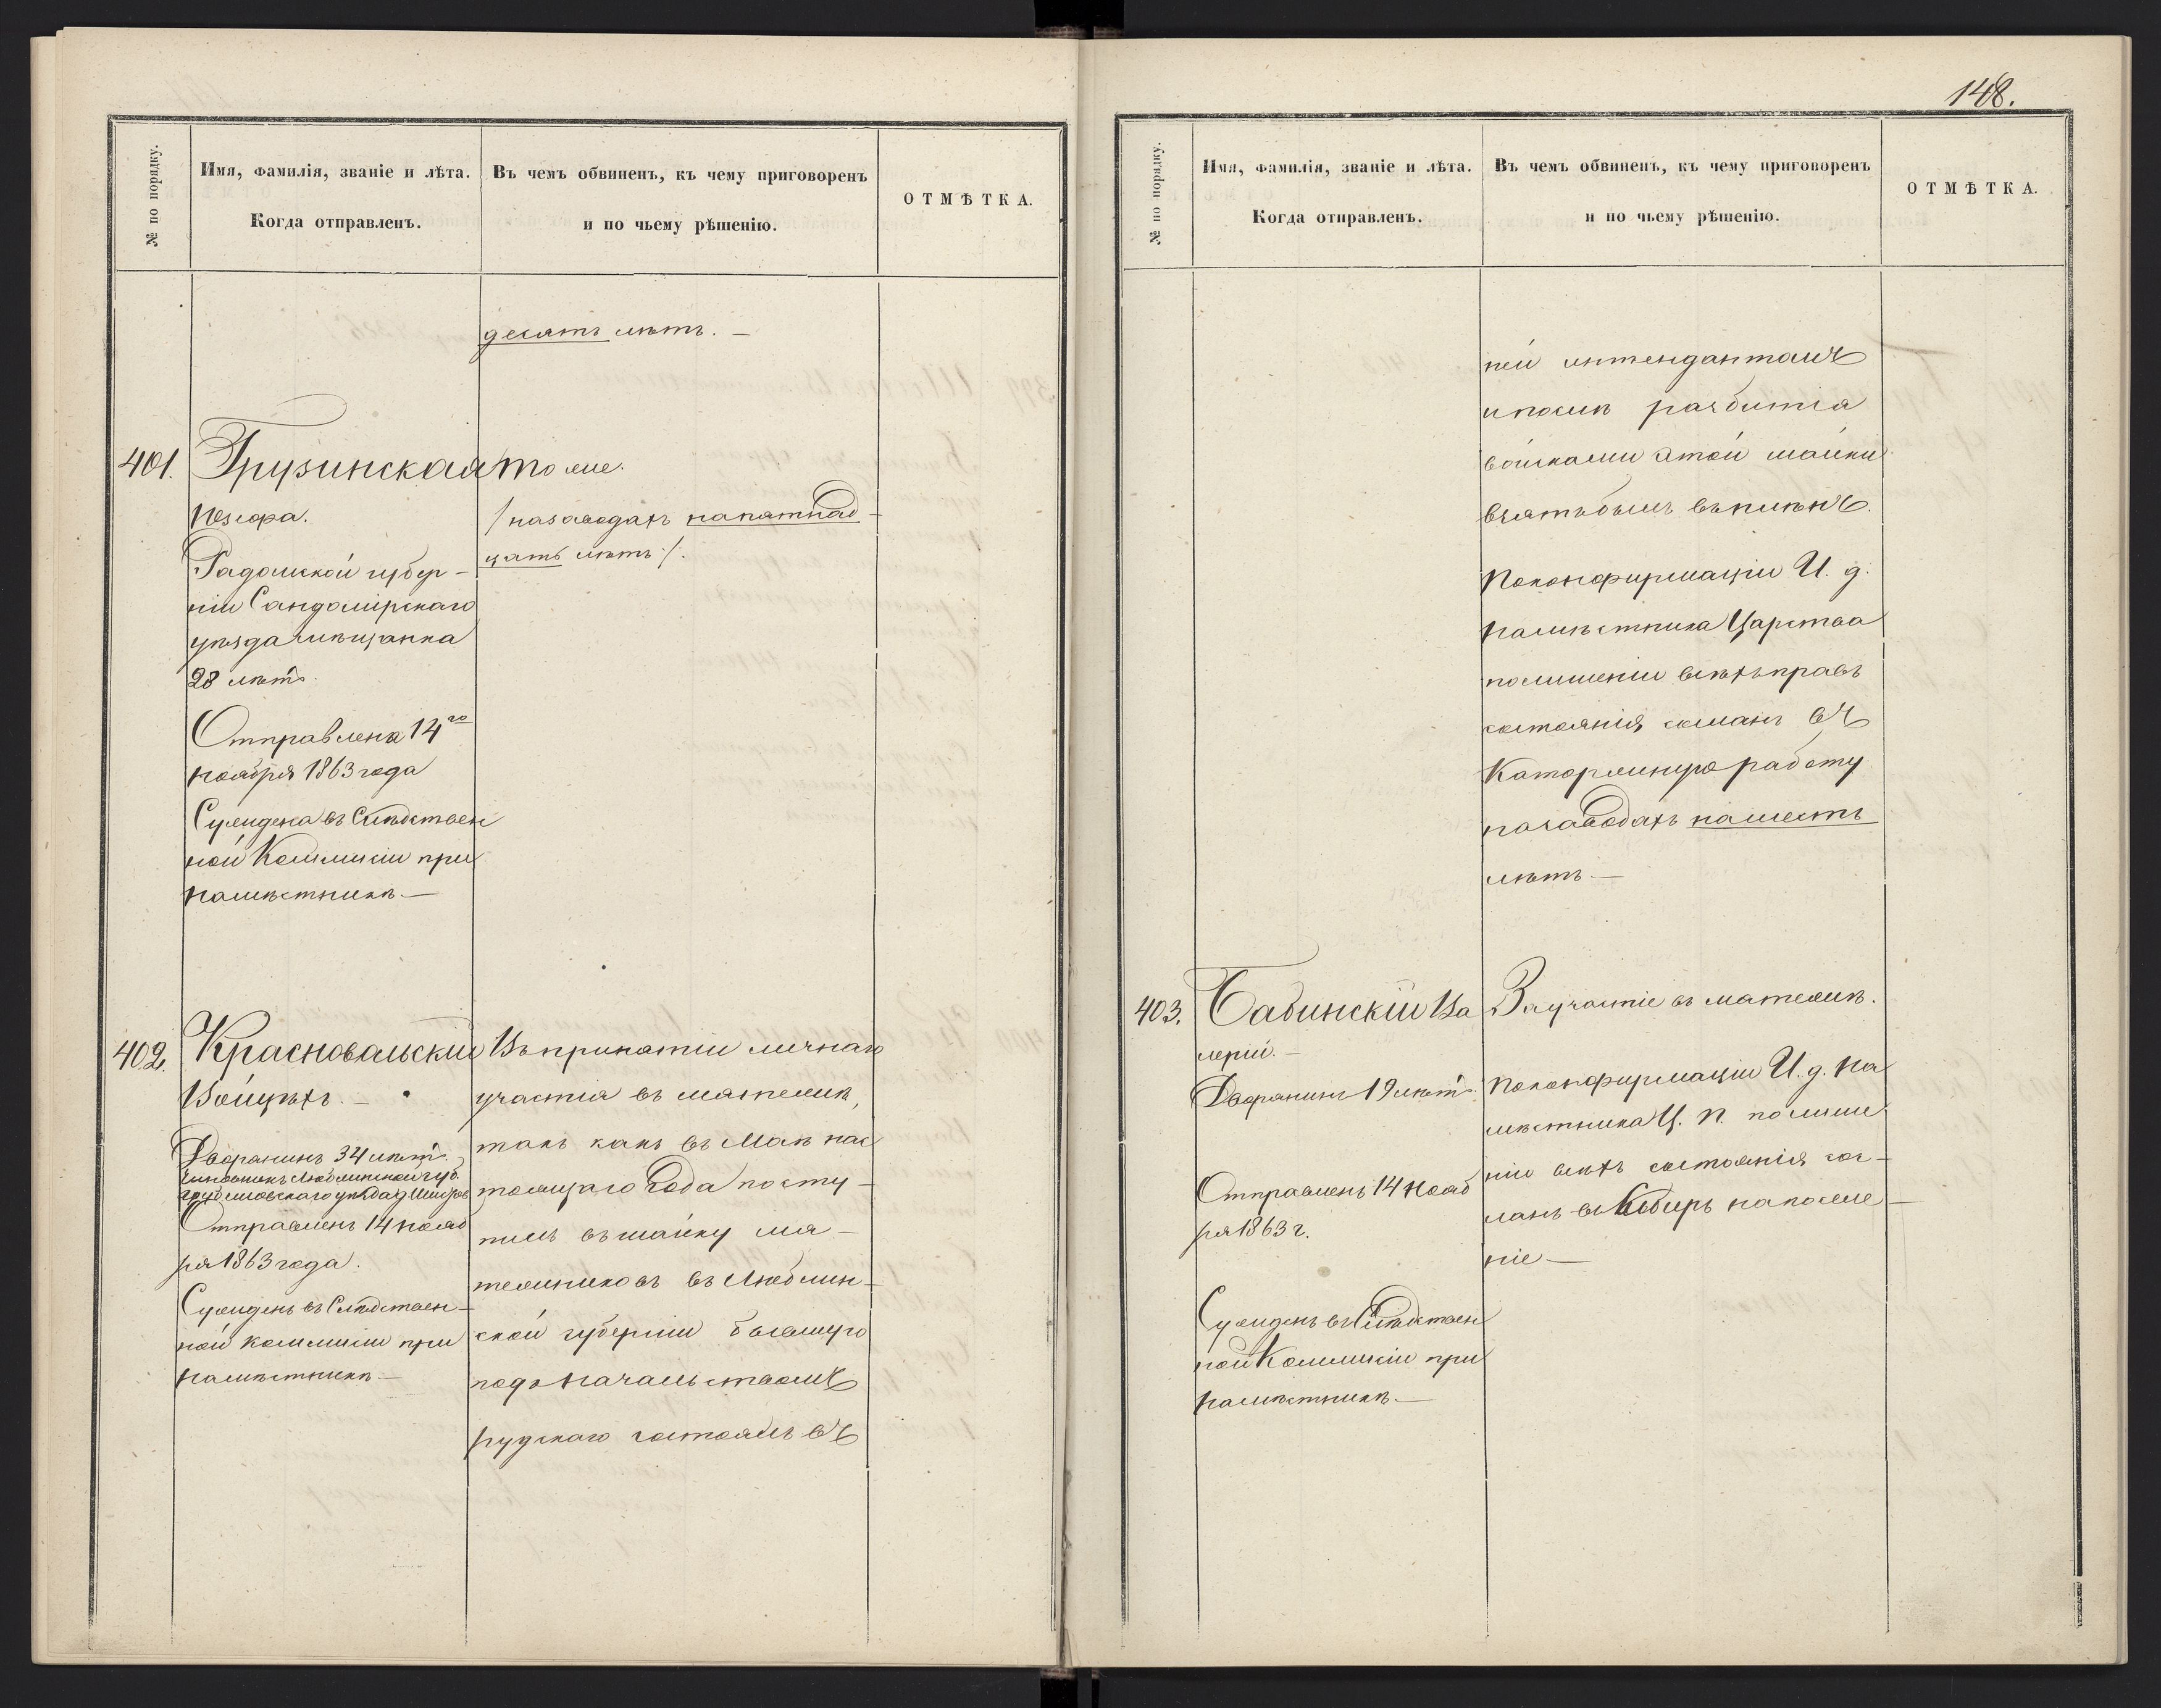 № по порядку.
Имя, фамилія, званіе и лѣта.
Когда отправленъ.
Въ чемъ обвиненъ, къ чему приговоренъ
и по чьему рѣшенію.
ОТМѢТКА.
десять лѣтъ. —
401.
Грузинская
Юзефа.
Радомской губер-
ніи Сандомірскаго
уѣзда мѣщанка
28 лѣтъ.
Отправлена 14го
Ноября 1863 года
Суждена въ Слѣдствен
ной Коммисіи при
Намѣстникѣ. —
тоже.
/на заводахъ на пятнад-
цать лѣтъ:/.
402.
Красновольскій
Войцѣхъ. —
Дворянинъ 34 лѣтъ.
Люблинской губ.
Грубешовскаго уѣзда
Отправленъ 14 Нояб
ря 1863 года.
Сужденъ въ Слѣдствен-
ной Коммисіи при
Намѣстникѣ. —
Въ принятіи личнаго
участія въ мятежѣ,
такъ какъ въ Маѣ нас
тоящаго года посту-
пилъ въ шайку мя-
тежниковъ въ Люблин-
ской губерніи бывшую
подъ начальствомъ
рудскаго состоялъ въ
148.
№ по порядку.
Имя, фамилія, званіе и лѣта.
Когда отправленъ.
Въ чемъ обвиненъ, къ чему приговоренъ
и по чьему рѣшенію.
ОТМѢТКА.
ней интендантомъ
и послѣ разбитія
войсками этой шайки
взятъ былъ въ плѣнъ.
По конфирмаціи И. д.
Намѣстника Царства
по лишеніи всѣхъ правъ
состоянія сосланъ въ
Каторжную работу
на заводахъ на шесть
лѣтъ —
403.
Бабинскій Ва
лерій. —
Дворянинъ 19 лѣтъ.
Отправленъ 14 Нояб
ря 1863 г.
Сужденъ въ Слѣдствен
ной Коммисіи при
Намѣстникѣ. —
За участіе въ мятежѣ.
По конфирмаціи И. д. На
мѣстника Ц. П. по лише
ніи всѣхъ состоянія сос-
ланъ въ Сибирь на поселе-
ніе —